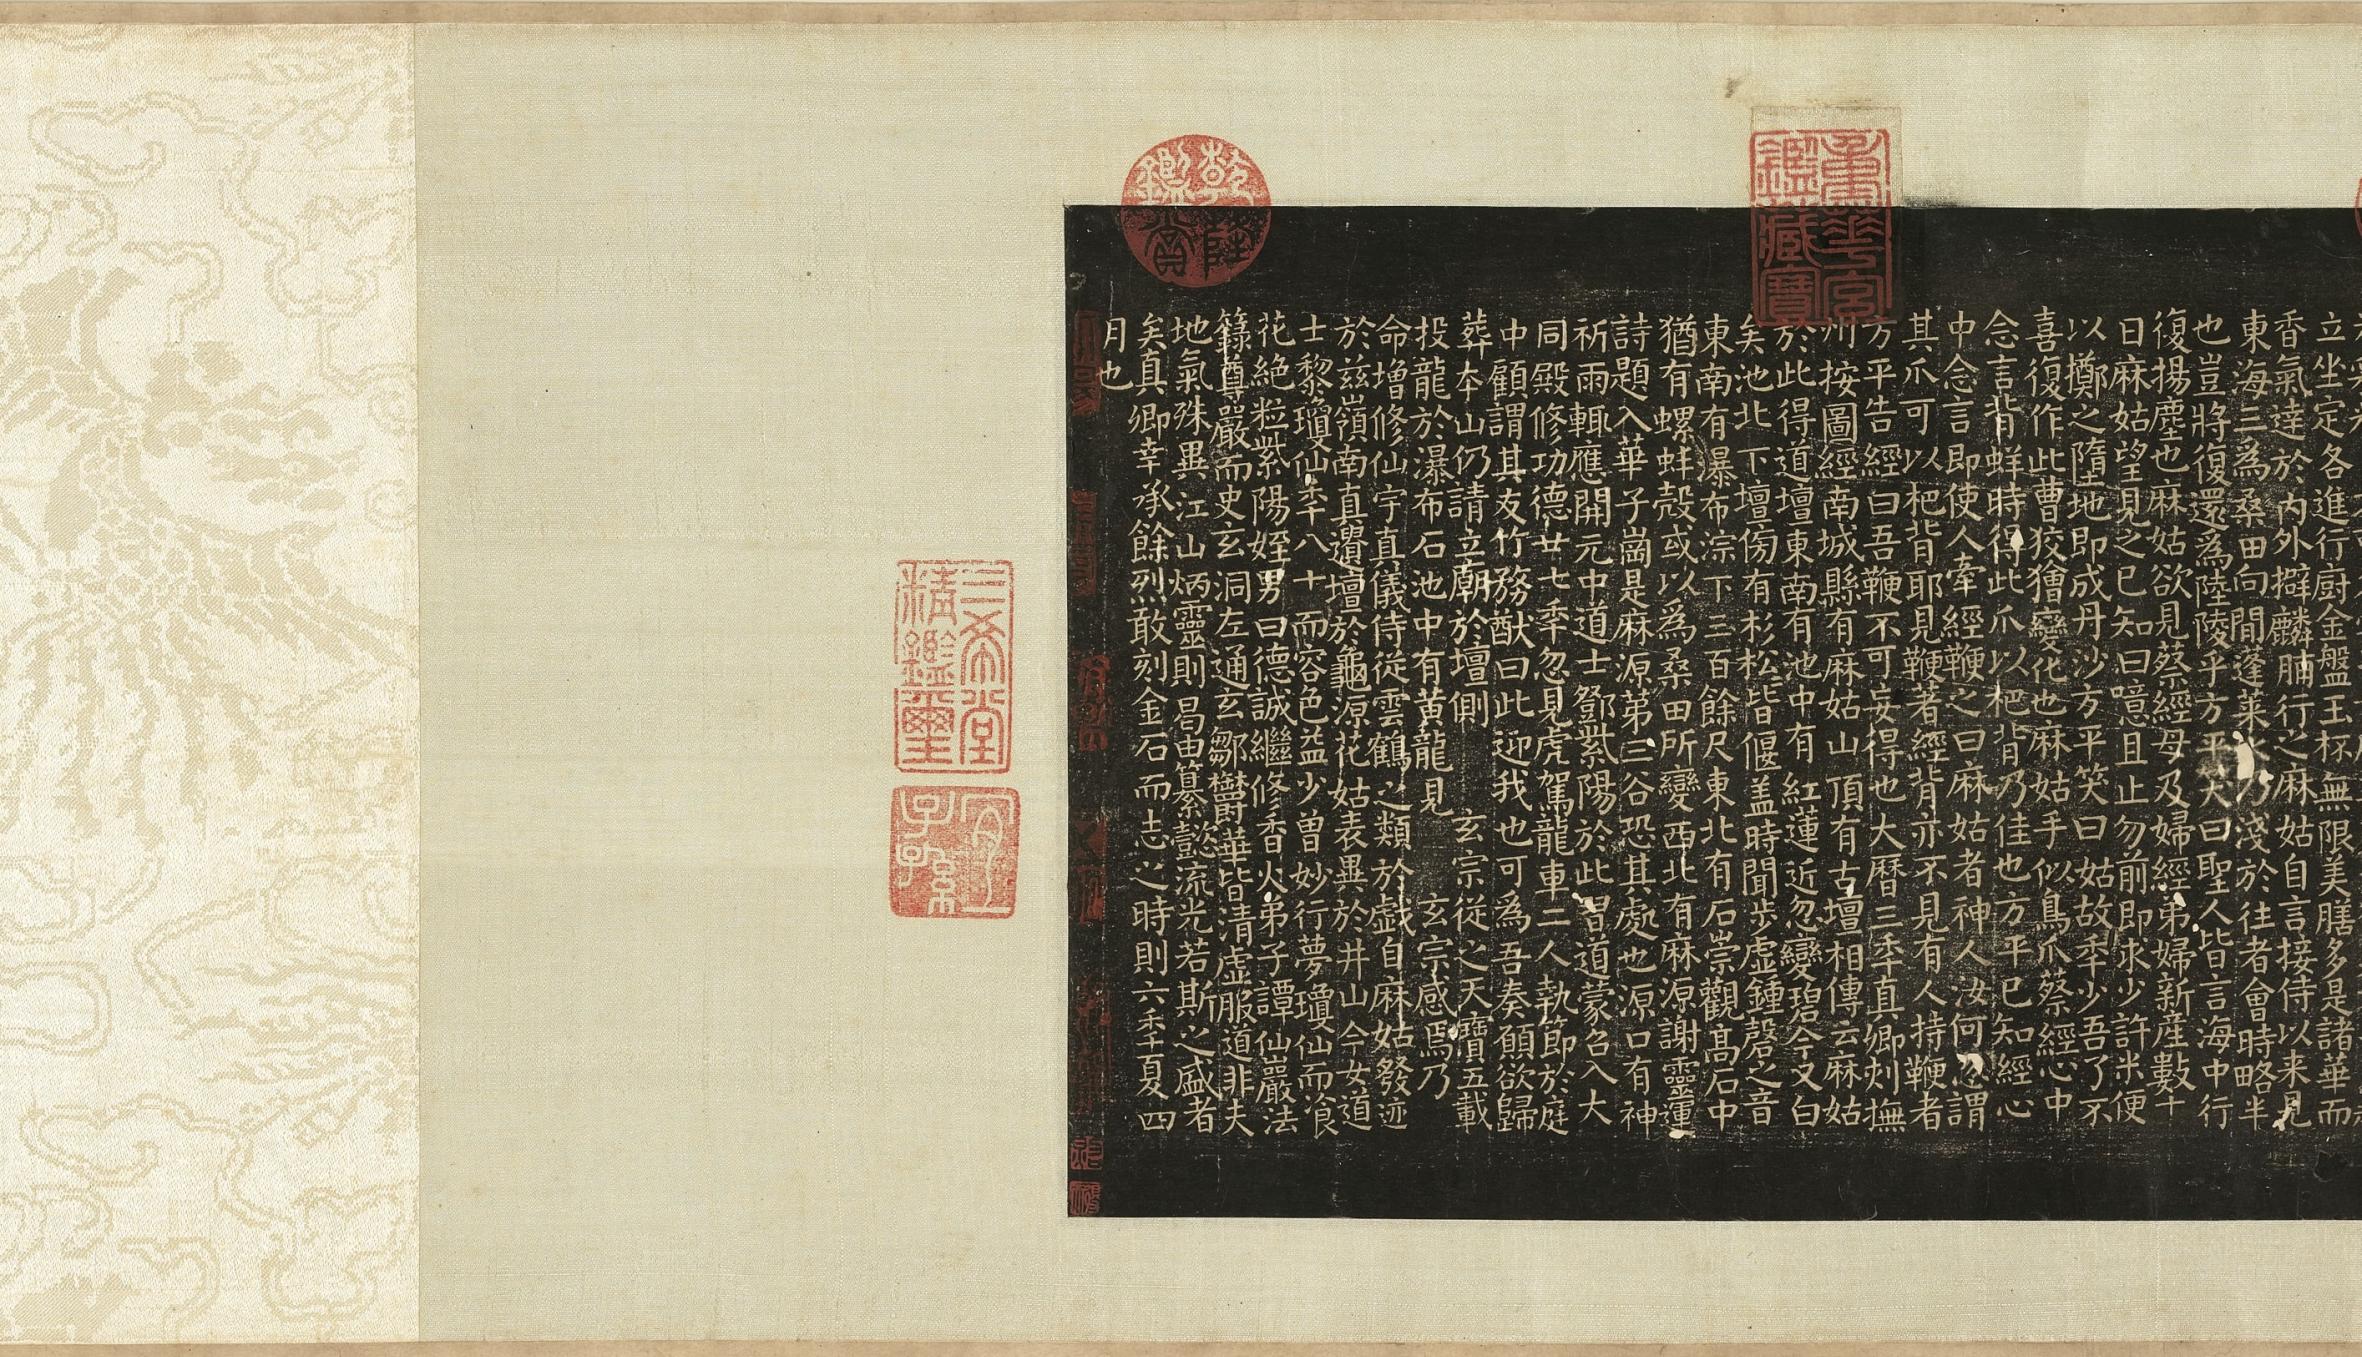 立坐定各進行廚金盤玉杯無限美膳多是諸華而
香氣達於內外擗麟脯行之麻姑自言接侍以来見
東海三為桑田向間蓬莱水乃淺於往者會時略半
也豈將復還為陸陵乎方平笑曰聖人皆言海中行
復揚塵也麻姑欲見蔡經母及婦經弟婦新産數十
日麻姑望見之已知曰噫且止勿前即求少許米便
以擲之墮地即成丹沙方平笑曰姑故秊少吾了不
喜復作此曹狡獪變化也麻姑手似鳥爪蔡經心中
念言背蛘時得此爪以杷背乃佳也方平已知經心
中念言即使人牽經鞭之曰麻姑者神人汝何忽謂
其爪可以杷背耶見鞭著經背亦不見有人持鞭者
方平告經曰吾鞭不可妄得也大曆三秊真卿刾撫
州按圖經南城縣有麻姑山頂有古壇相傳云麻姑
於此得道壇東南有池中有紅蓮近忽變碧今又白
矣池北下壇傍有杉松皆偃盖時聞步虛鍾磬之音
東南有瀑布淙下三百餘尺東北有石崇觀高石中
猶有螺蚌殼或以為桑田所變西北有麻源謝靈運
詩題入華子崗是麻源第三谷恐其處也源口有神
祈雨輒應開元中道士鄧紫陽於此習道蒙召入大
同殿修功德廿七秊忽見虎駕龍車二人執節於庭
中顧謂其友竹務猷曰此迎我也可為吾奏願欲歸
葬本山仍請立廟於壇側 玄宗從之天寶五載
投龍於瀑布石池中有黃龍見 玄宗感焉乃
命增修仙宇真儀侍從雲鶴之類於戲自麻姑發迹
於茲嶺南真遺壇於龜源花姑表異於井山今女道
士黎瓊仙秊八十而容色益少曾妙行夢瓊仙而飡
花絕粒紫陽姪男曰德誠繼修香火弟子譚仙巖法
籙尊嚴而史玄洞左通玄鄒鬱華皆清虛服道非夫
地氣殊異江山炳靈則曷由纂懿流光若斯之盛者
矣真卿幸承餘烈敢刻金石而志之時則六秊夏四
月也
重華宮鑑藏寶
乾隆鑑賞
三希堂精鑑璽
宜子孫